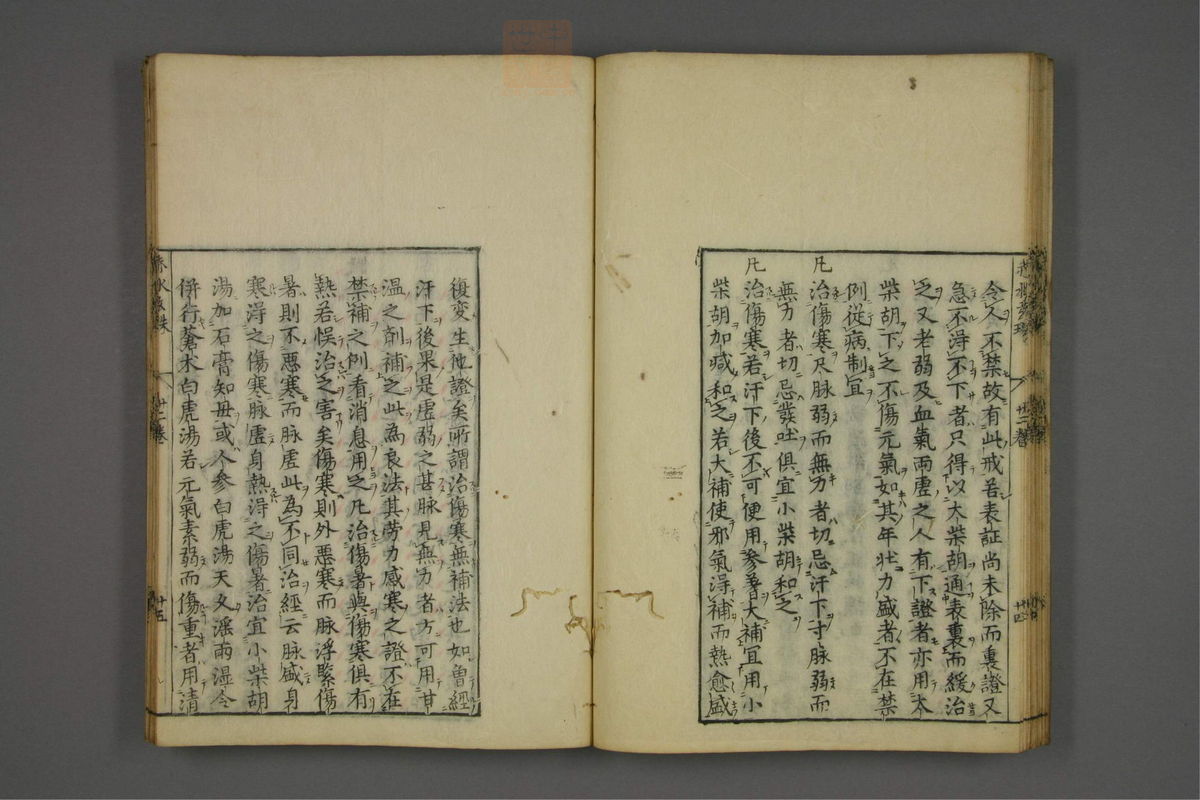 令人不禁故有此戒若表証尚未除而裏證又
急不得不下者只得以大柴胡通表裏而緩治
之又老弱及血氣兩虛之人有下證者亦用大
柴胡下之不傷元氣如其年壮力盛者不在禁
例從病制宜
凡治傷寒尺脉弱而無力者切忌汗下寸脉弱而
無力者切忌發吐俱宜小柴胡和之
凡治傷寒若汗下後不可便用參蓍大補宜用小
柴胡加減和之若大補使邪氣得補而熱愈盛
廿二卷
廿四
復変生他證矣所謂治傷寒無補法也如曽經
汗下後果是虛弱之甚脉見無力者方可用甘
温之剤補之此為良法其勞力感寒之證不在
禁補之例看消息用之凡治傷暑與傷寒俱有
熱若悞治之害矣傷寒則外惡寒而脉浮緊傷
暑則不惡寒而脉虛此為不同治經云脉盛身
寒得之傷寒脉虛身熱得之傷暑治宜小柴胡
湯加石膏知毋或人參白虎湯天久淫雨湿令
併行蒼朮白虎湯若元氣素弱而傷重者用清
廿二卷
廿五